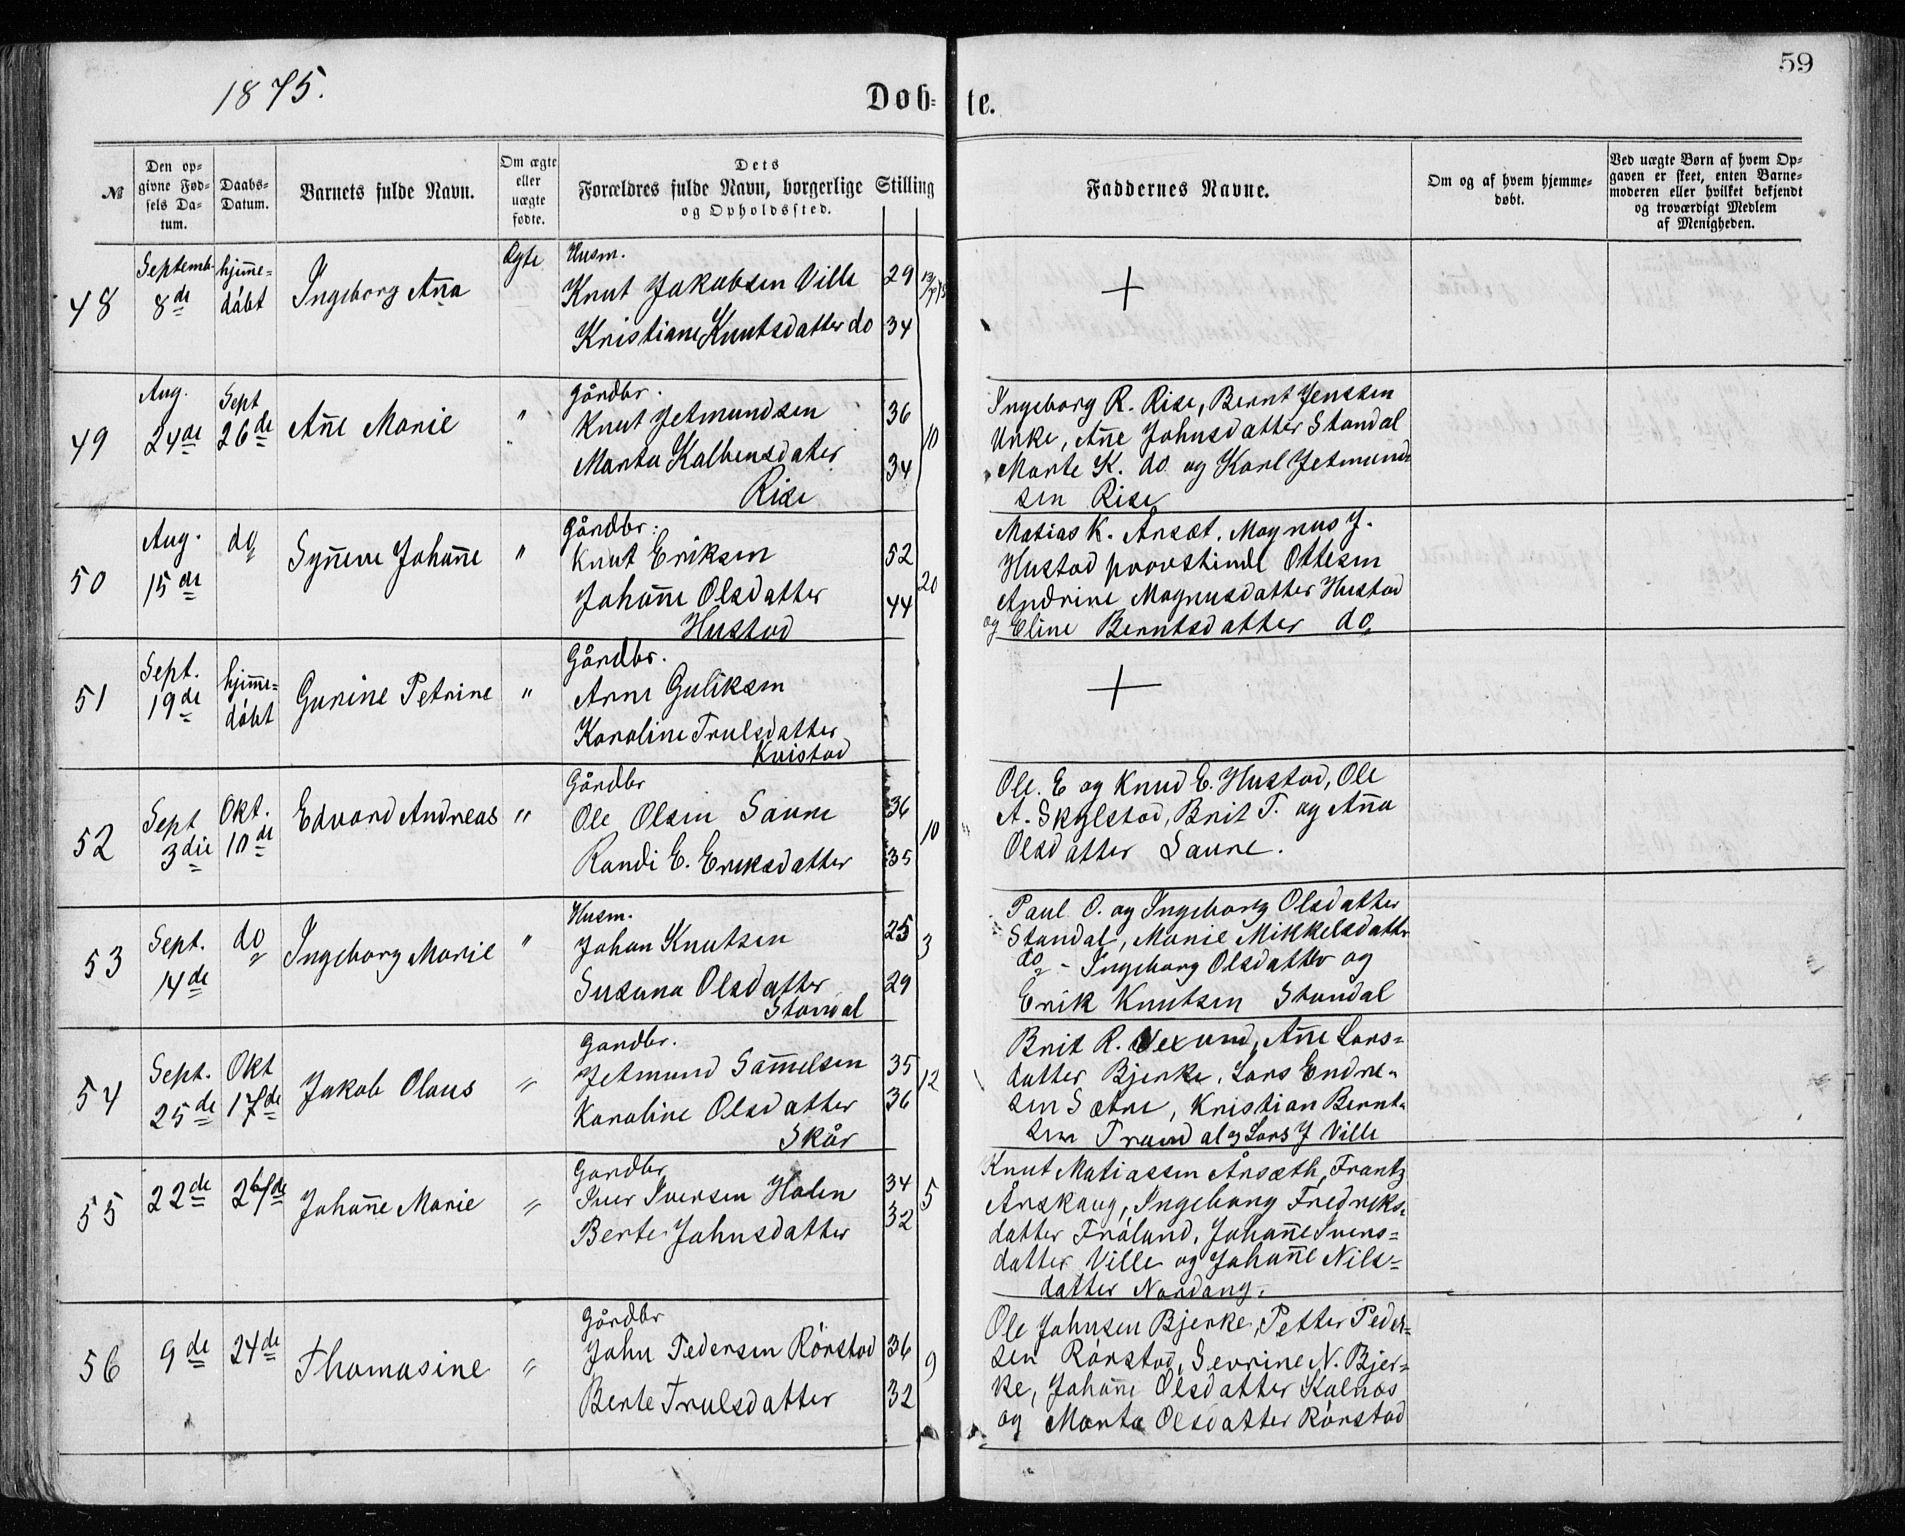 59
1875.
Døb- te.
№
Den op-
givne Fød-
sels Da-
tum.
Daabs-
Datum.
Barnets fulde Navn.
Om ægte
eller
uægte
fødte.
Dets
Forældres fulde Navn, borgerlige Stilling
og Opholdssted.
Faddernes Navne.
Om og af hvem hjemme-
døbt.
Ved uægte Børn af hvem Op-
gaven er skeet, enten Barne-
moderen eller hvilket bekjendt
og troværdigt Medlem
af Menigheden.
48
Septemb.
8de
hjem̄e-
døbt
Ingeborg An̄a
Ægte
Husm.
Knut Jakobsen Ville 29
Kristiane Knutsdatter do 34
+
49
Aug.
24de
Sept
26de
An̄e Marie
"
Gårdbr.
Knut Jetmundsen 36
Marta Kalbensdater 34
Rise
10
Ingeborg R. Rise, Bernt Jenssen
Urke, An̄e Johnsdatter Standal
Marte K. do og Karl Jetmund-
sen Rise
50
Aug.
15de
do
Syn̄eve Johan̄e
"
Gårdbr:
Knut Eriksen 52
Johan̄e Olsdatter 44
Hustad
20
Matias K. Årsæt, Magnus J.
Hustad provstinde Ottesen
Andrine Magnusdatter Hustad
og Eline Berntsdatter do
51
Sept.
19de
hjem̄e-
døbt
Gurine Petrine
"
Gårdbr.
Arne Guliksen
Karoline Trulsdatter
Kvistad
+
52
Sept
3die
Okt.
10de
Edvard Andreas
"
Gårdbr
Ole Olsen Saure 36
Randi E. Eriksdatter 35
10
Ole. E og Knud E. Hustad, Ole
A. Skylstad, Brit T. og An̄a
Olsdatter Saure.
53
Sept.
14de
do
Ingeborg Marie
"
Husm.
Johan Knutsen 25
Susana Olsdatter 29
Standal
3
Paul O. og Ingeborg Olsdatter
Standal, Marie Mikkelsdatter
do - Ingeborg Olsdatter og
Erik Knutsen Standal
54
Sept.
25de
Okt
17de
Jakob Olaus
"
Gardbr.
Jetmund Sam̄elsen 35
Karoline Olsdatter 36
Skår
12
Brit R. Vexund, An̄e Lars-
datter Bjerke, Lars Endre-
sen Sætre, Kristian Bernt-
sen Trandal og Lars J Ville
55
22de
Johan̄e Marie
"
Gardbr
Iver Iversen Holen 34
Berte Johnsdatter 32
5
Knut Matiassen Årsæth, Frantz
Årskaug, Ingeborg Fredriks-
datter Frøland, Johan̄e Ivers-
datter Ville og Johan̄e Nils-
datter Nordang.
56
9de
24de
Thomasine
"
Gårdbr
John Pedersen Rørstad 36
Berte Trulsdatter 32
9
Ole Johnsen Bjerke, Petter Peder-
sen Rørstad, Sevrine N. Bjer-
ke, Johan̄e Olsdatter Kalnæs
og Marta Olsdatter Rørstad